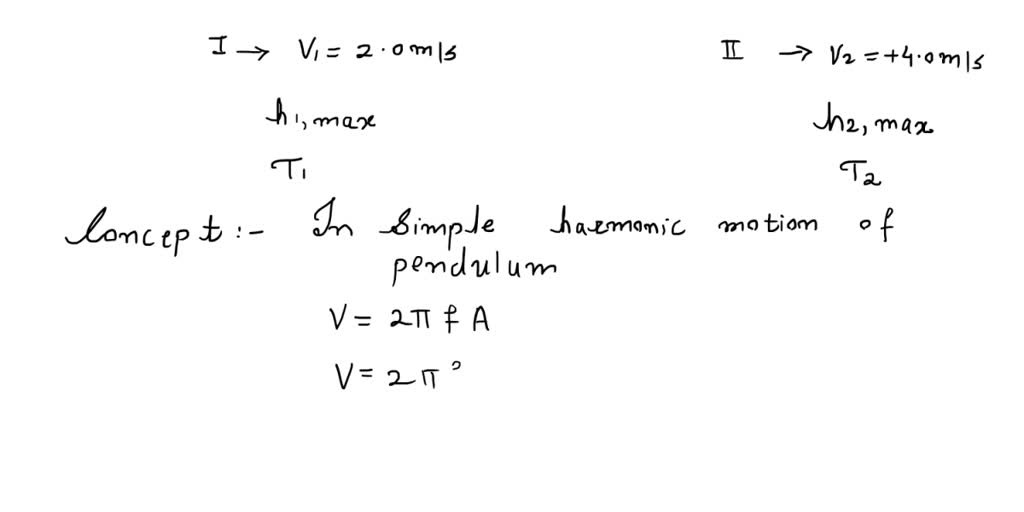 I → V1 = 2.0 m/s II → V2 = +4.0 m/s
h1, max h2, max
T1 T2
Concept :- In Simple harmonic motion of
pendulum
V = 2π f A
V = 2π